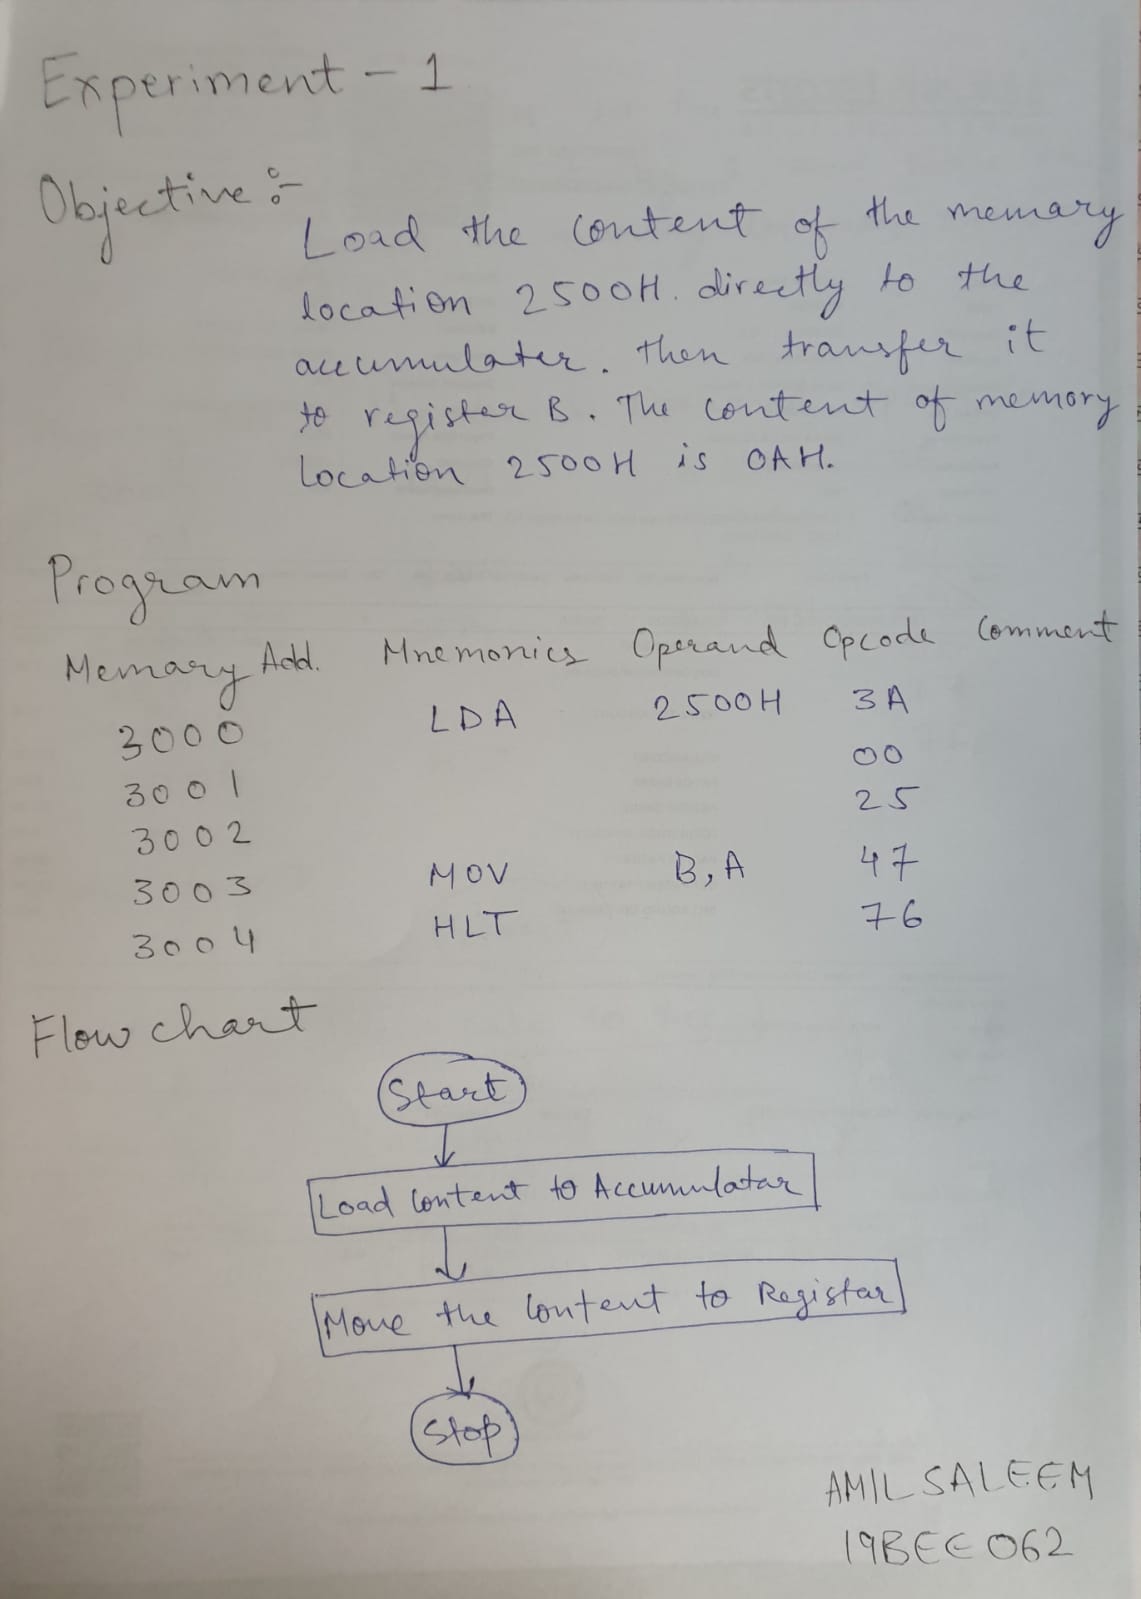 Experiment - 1
Objective :-
Load the content of the memary
location 2500H. directly to the
accumulater. then transfer it
to register B. The content of memory
Location 2500H is 0AH.
Program
Memary Add. Mnemonics Operand Opcode Comment
3000 LDA 2500H 3A
3001 00
3002 25
3003 MOV B,A 47
3004 HLT 76
Flow chart
Start
Load Content to Accumulatar
Move the Content to Registar
Stop
AMIL SALEEM
19BEE062